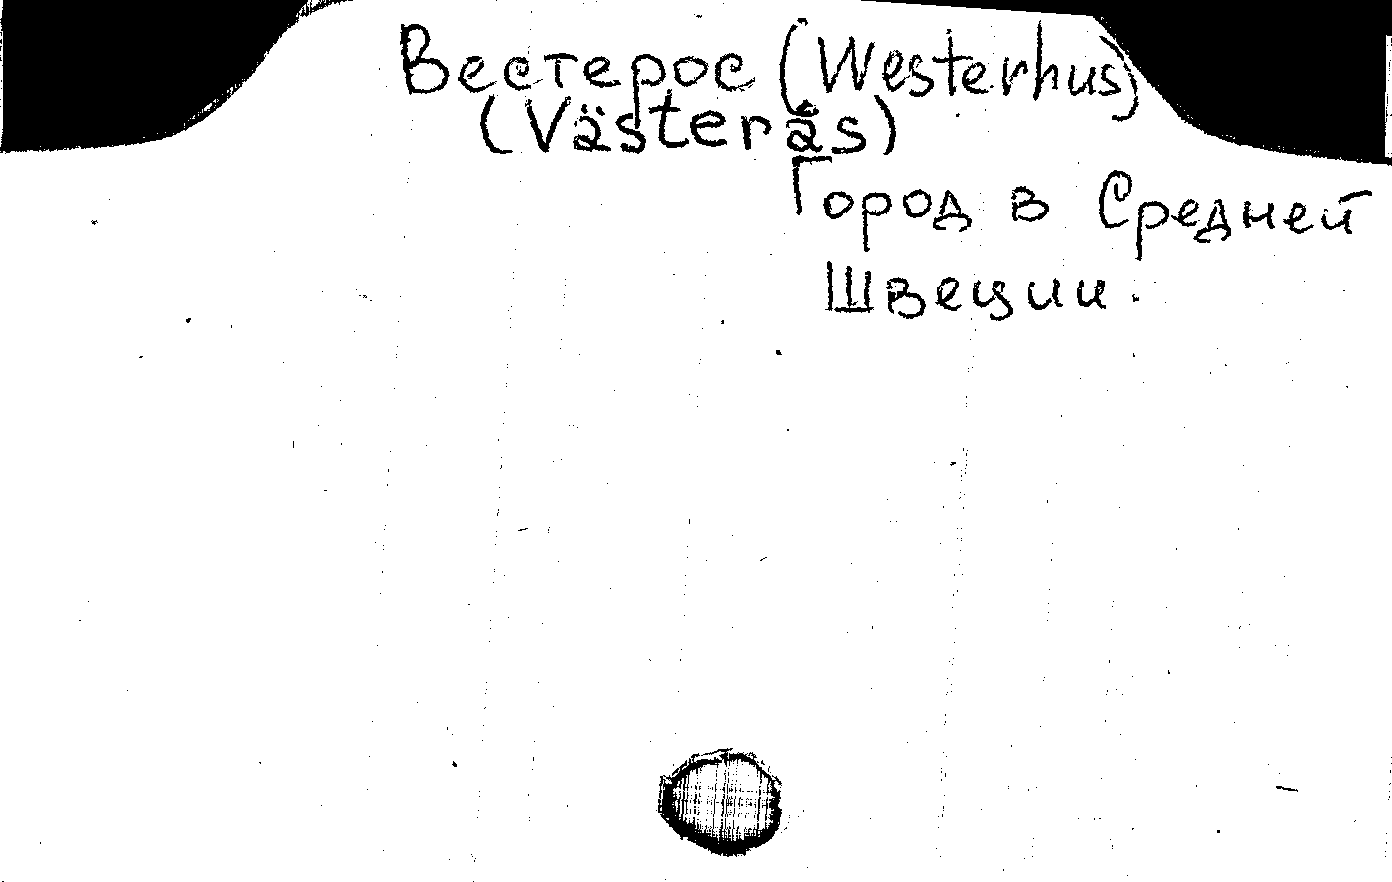 Вестерос (Westerhus)
(Västerås)
Город в Средней
Швеции.